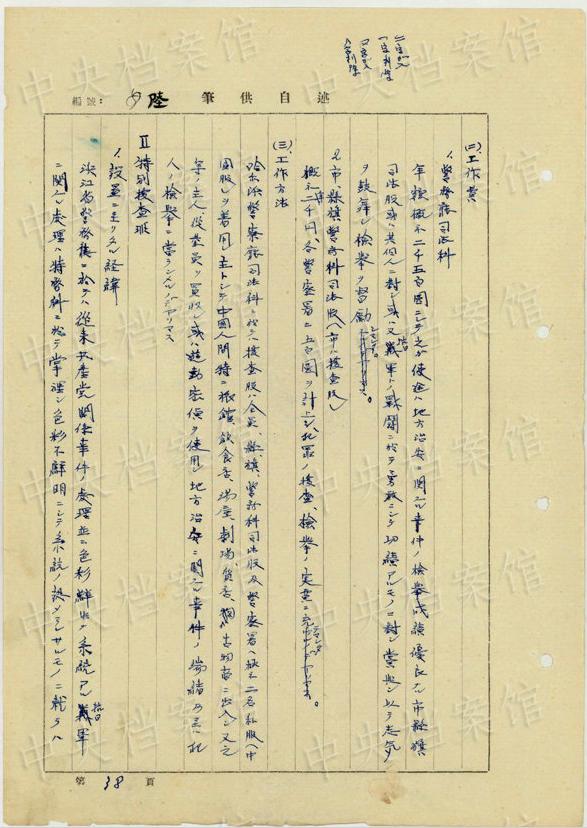 述自供筆
陸
編號:
(二)、工作費
1、警務廳司法科
年額概ネ二千五百圓ニシテ之ガ使途ハ地方治安ニ関スル事件ノ検挙成績優良ナル市縣旗
司法股或ハ其個人ニ対シ或ハ又抗日義軍トノ戦闘ニ於テ勇敢ニシテ功績アルモノニ対シ賞与シ以テ志気
ヲ鼓舞シ検挙ヲ督励
2、市、縣旗警務科司法股(市ハ捜査股)
概ネ二千円、各警察署ニ五百圓ヲ計上シ、犯罪ノ捜査、検挙ノ実費ニ充
(三)、工作方法
哈尔浜警察廳司法科ニ於テハ捜査股ハ全員、縣旗、警務科司法股及警察署ハ概ネ二名私服(中
國服)ヲ着用、主トシテ中國人間特ニ旅館、飲食店、場屋、劇場、質店、古物商ニ出入シ又之
等ノ主人従業員ヲ買収シ或ハ遊動密偵ヲ使用シ地方治安ニ関スル事件ノ端緒乃至ハ犯
人ノ検挙ニ當
Ⅱ 特別捜査班
1、設置ニ至リタル経緯
浜江省警務廳ニ於テハ従来共産党関係事件ノ處理並ニ色彩鮮明ノ系統アル抗日義軍
ニ関スル處理ハ特務科ニ於テ掌理シ色彩不鮮明ニシテ系統ノ
第 38 頁
中央档案馆